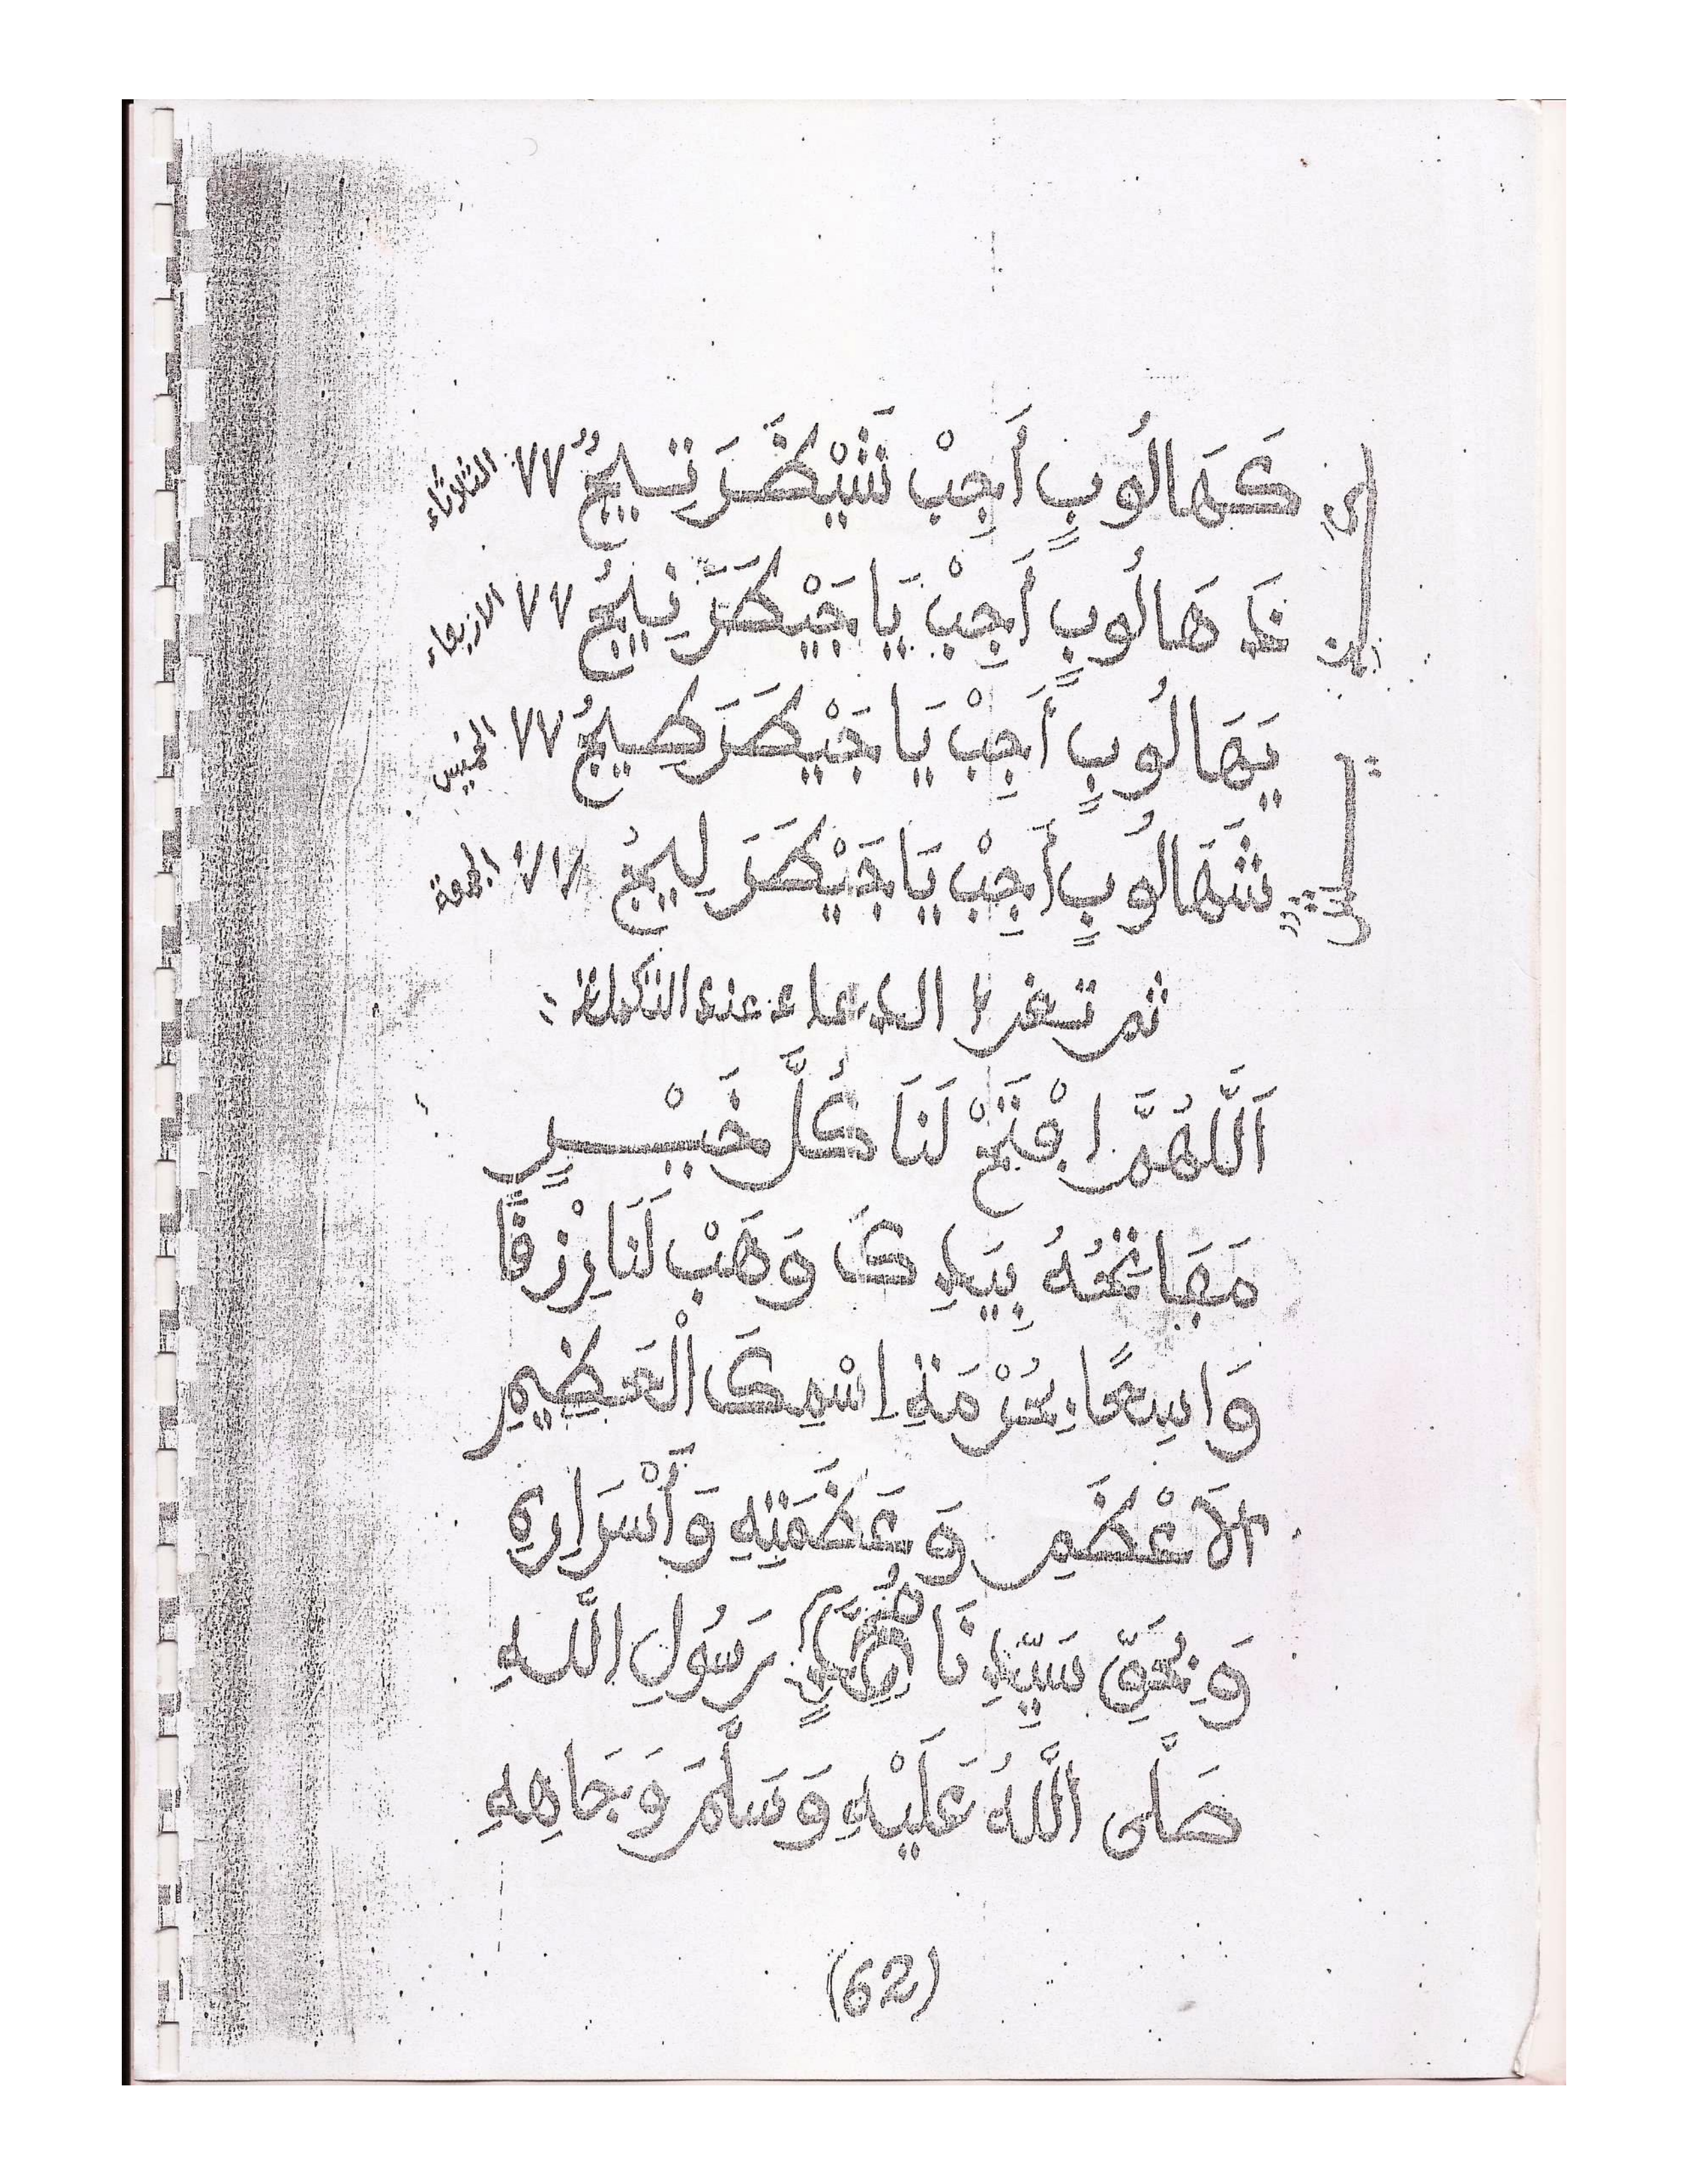 كَهَالُوبٍ أَجِبْ شَيْكَرَ نِيخُ ٧٧ الثلاثاء
هَالُوبٍ أَجِبْ يَا جَيْطَرَ نِيخُ ٧٧ الاربعاء
يَهَالُوبٍ أَجِبْ يَا جَيْطَرَ طِيخُ ٧٧ الخميس
شَهَالُوبٍ أَجِبْ يَا جَيْطَرَ لِيخُ ٧٧ الجمعة
ثم تقرا الدعاء عدد
اَللَّهُمَّ افْتَحْ لَنَا كُلَّ خَيْرٍ
مَفَاتِحُهُ بِيَدِكَ وَهَبْ لَنَا رِزْقًا
وَاسِعًا بِحُرْمَةِ اِسْمِكَ الْعَظِيمِ
الَاعْظَمِ وَعَظَمَتِهِ وَأَسْرَارِهِ
وَبِحَقِّ سَيِّدِنَا مُحَمَّدٍ رَسُولِ اللَّهِ
صَلَّى اللَّهُ عَلَيْهِ وَسَلَّمَ وَبِجَاهِهِ
(62)